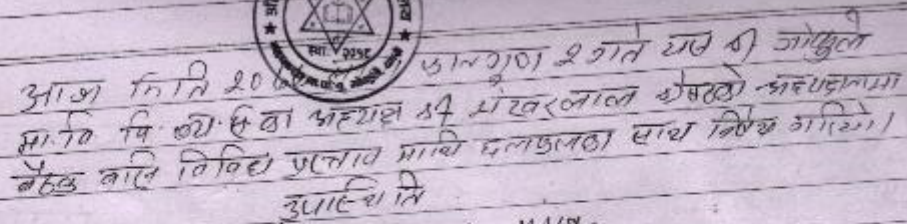 स्था. २०१८
आज मिति २०६ फाल्गुण २ गते यस श्री गोकुले
मा.वि वि.व्य.स.का अध्यक्ष श्री शंखरलाल श्रेष्ठको अध्यक्षतामा
बैठक बसि विविध प्रस्ताव माथि छलफलका साथ निर्णय गरियो।
उपस्थिति